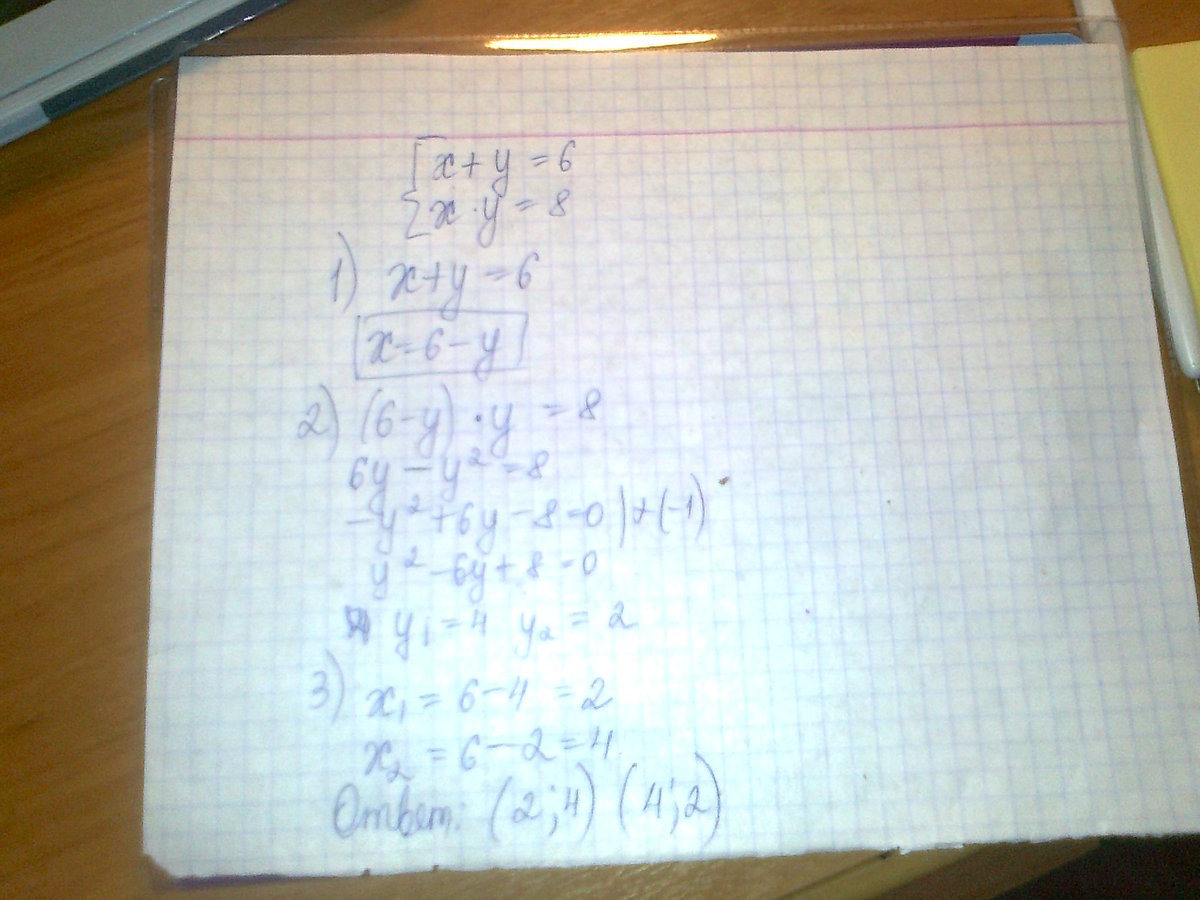 { x + y = 6
x · y = 8
1) x + y = 6
x = 6 - y
2) (6 - y) · y = 8
6y - y² = 8
-y² + 6y - 8 = 0 | * (-1)
y² - 6y + 8 = 0
y₁ = 4 y₂ = 2
3) x₁ = 6 - 4 = 2
x₂ = 6 - 2 = 4
Ответ: (2; 4) (4; 2)